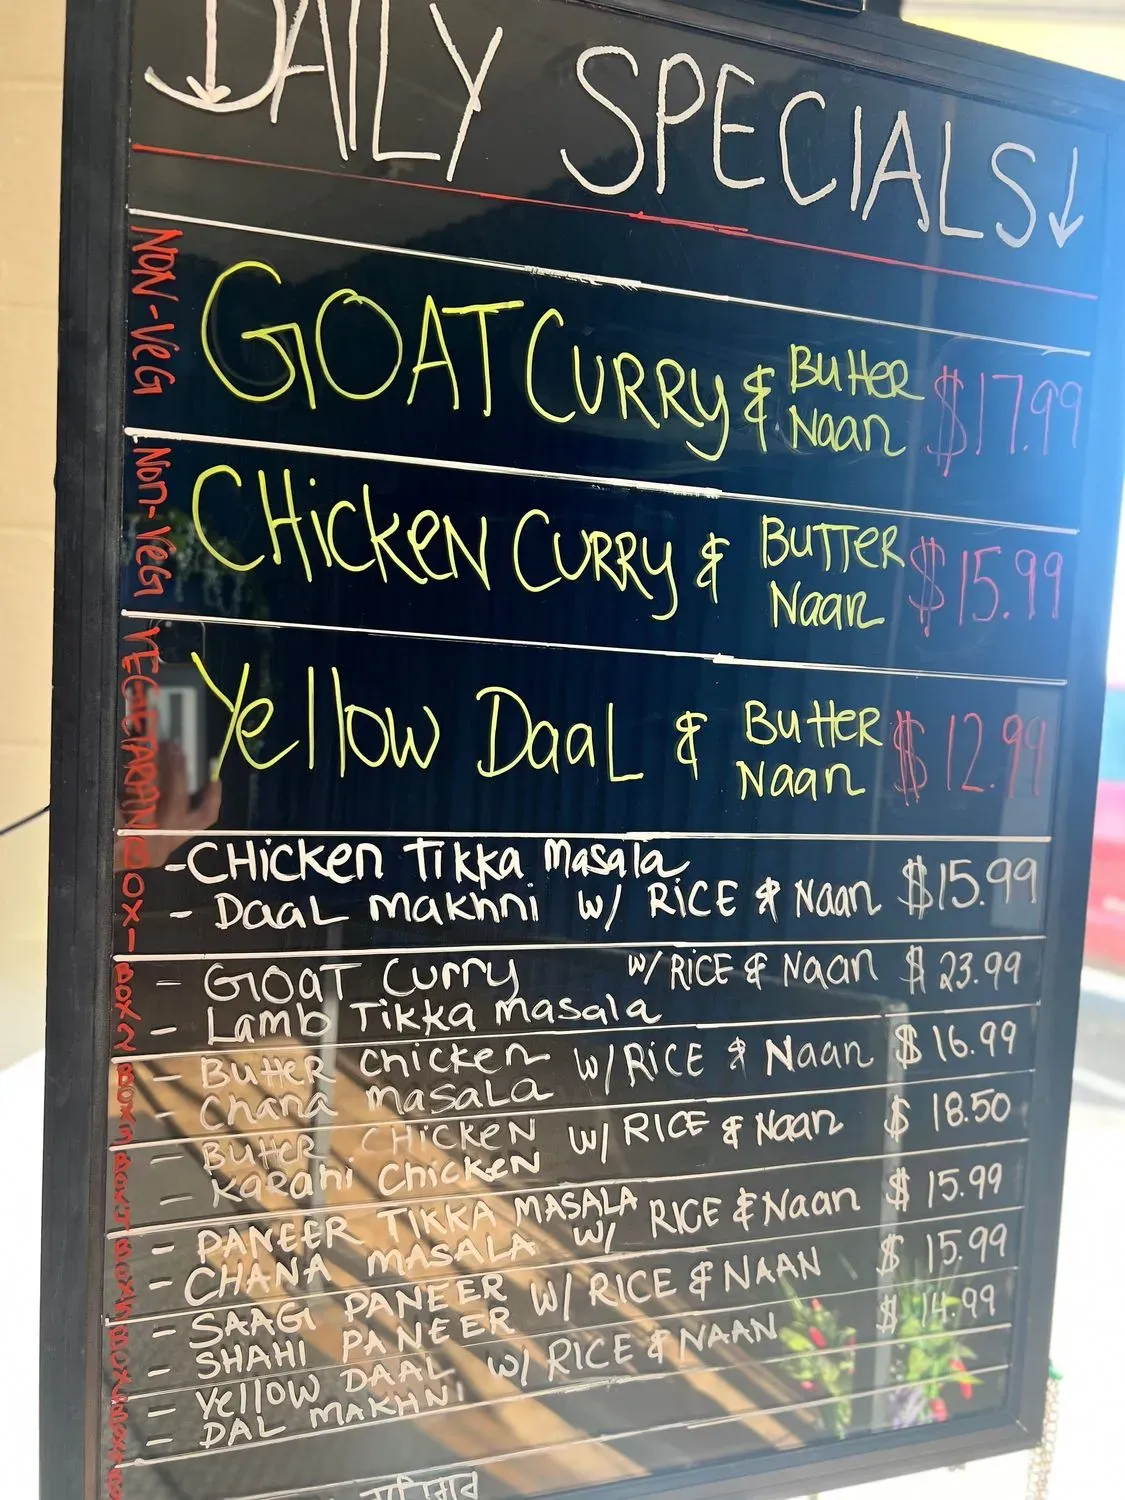 DAILY SPECIALS
NON-VEG
GOAT CURRY & Butter Naan $17.99
Non-Veg
CHicken CURRY & BUTTER Naan $15.99
VEGETARIAN
Yellow DaaL & Butter Naan $12.99
BOX-1
-CHicken Tikka Masala
- DaaL makhni w/ RiCE & Naan $15.99
BOX 2
- GOAT Curry w/ RICE & Naan $23.99
- Lamb Tikka masala
BOX 3
- Butter chicken w/ RiCE & Naan $16.99
- Chana masala
- Butter CHicken w/ RICE & Naan $18.50
- Karahi Chicken
- PANEER TIKKA MASALA w/ RICE & Naan $15.99
- CHANA MASALA
- SAAG PANEER w/ RICE & NAAN $15.99
- SHAHI PANEER
- Yellow DAAL w/ RICE & NAAN $14.99
- DAL MAKHNI